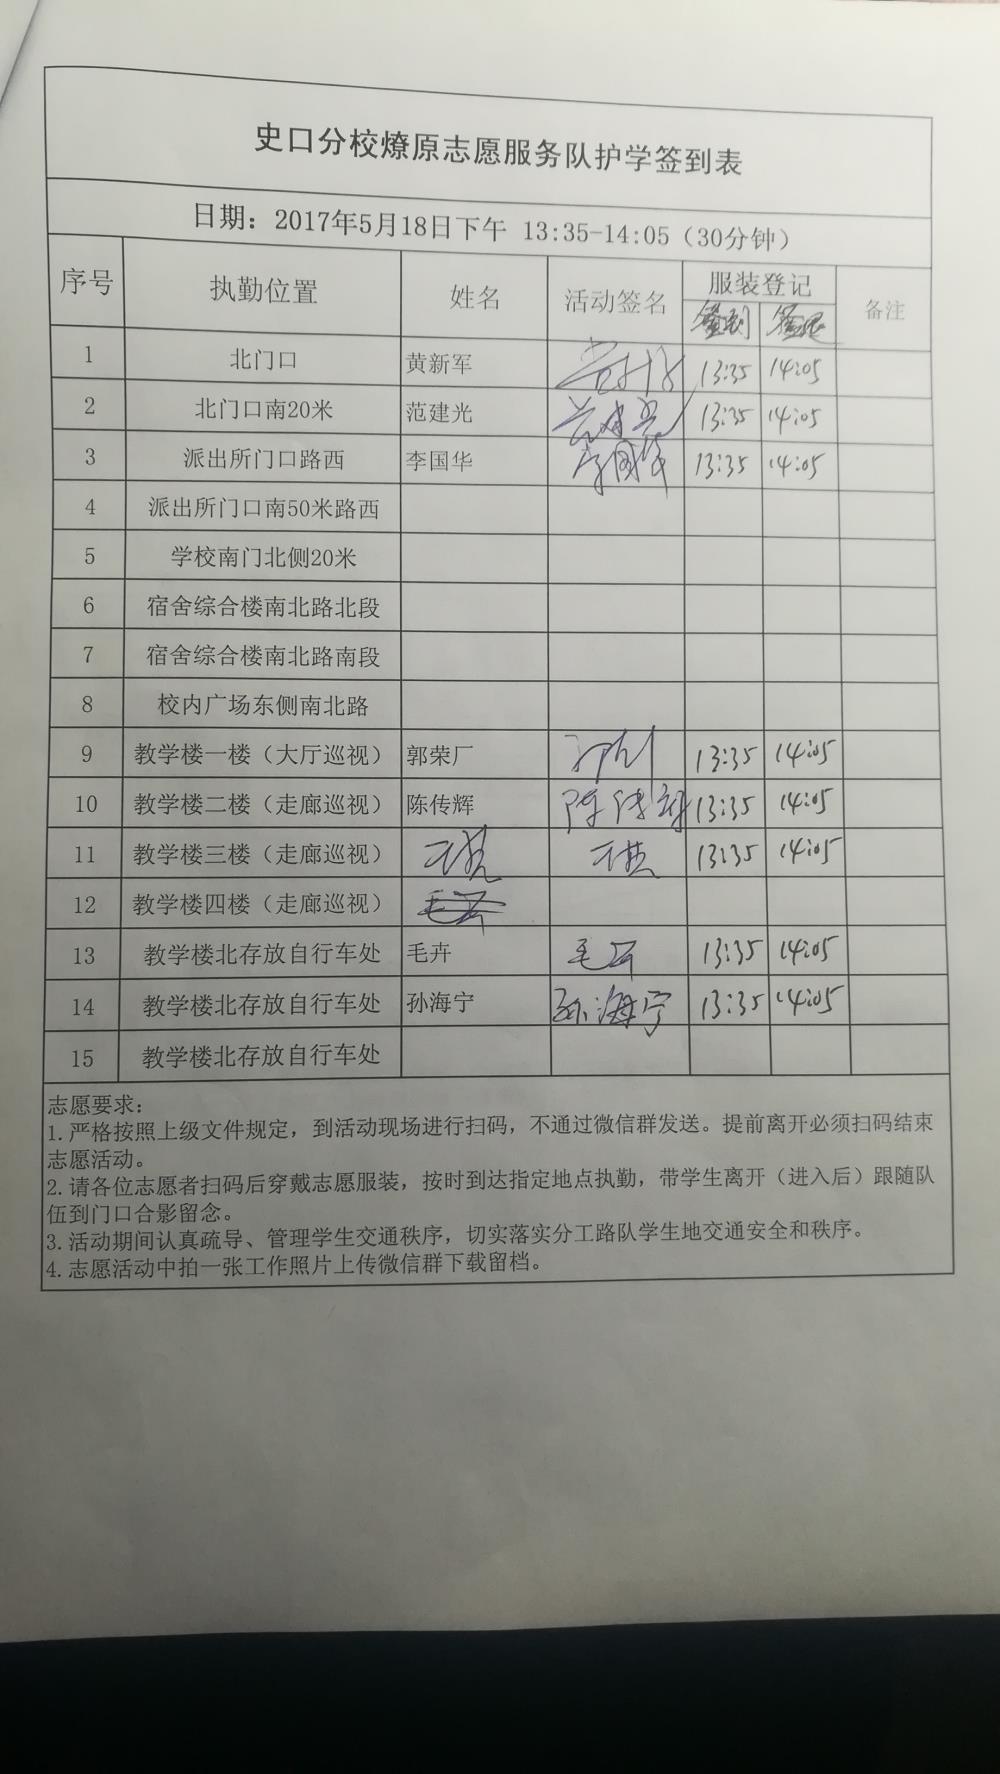 史口分校燎原志愿服务队护学签到表
日期：2017年5月18日下午 13:35-14:05（30分钟）
序号 执勤位置 姓名 活动签名 服装登记 备注
签到 签退
1 北门口 黄新军 13:35 14:05
2 北门口南20米 范建光 范建光 13:35 14:05
3 派出所门口路西 李国华 李国华 13:35 14:05
4 派出所门口南50米路西
5 学校南门北侧20米
6 宿舍综合楼南北路北段
7 宿舍综合楼南北路南段
8 校内广场东侧南北路
9 教学楼一楼（大厅巡视） 郭荣厂 13:35 14:05
10 教学楼二楼（走廊巡视） 陈传辉 陈传辉 13:35 14:05
11 教学楼三楼（走廊巡视） 13:35 14:05
12 教学楼四楼（走廊巡视）
13 教学楼北存放自行车处 毛卉 毛卉 13:35 14:05
14 教学楼北存放自行车处 孙海宁 孙海宁 13:35 14:05
15 教学楼北存放自行车处
志愿要求：
1.严格按照上级文件规定，到活动现场进行扫码，不通过微信群发送。提前离开必须扫码结束
志愿活动。
2.请各位志愿者扫码后穿戴志愿服装，按时到达指定地点执勤，带学生离开（进入后）跟随队
伍到门口合影留念。
3.活动期间认真疏导、管理学生交通秩序，切实落实分工路队学生地交通安全和秩序。
4.志愿活动中拍一张工作照片上传微信群下载留档。